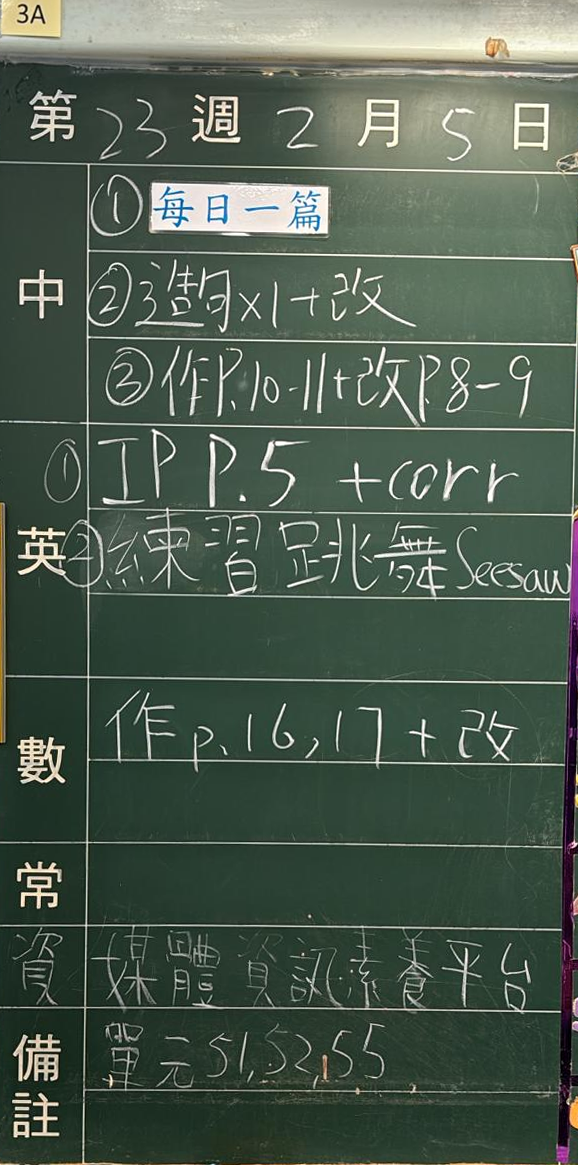 3A
第23週2月5日
中
① 每日一篇
②造句x1+改
③作P.10-11+改P.8-9
英
① IP P.5 +corr
②練習跳舞Seesaw
數
作p.16,17+改
常
資 媒體資訊素養平台
備註
單元51,52,55